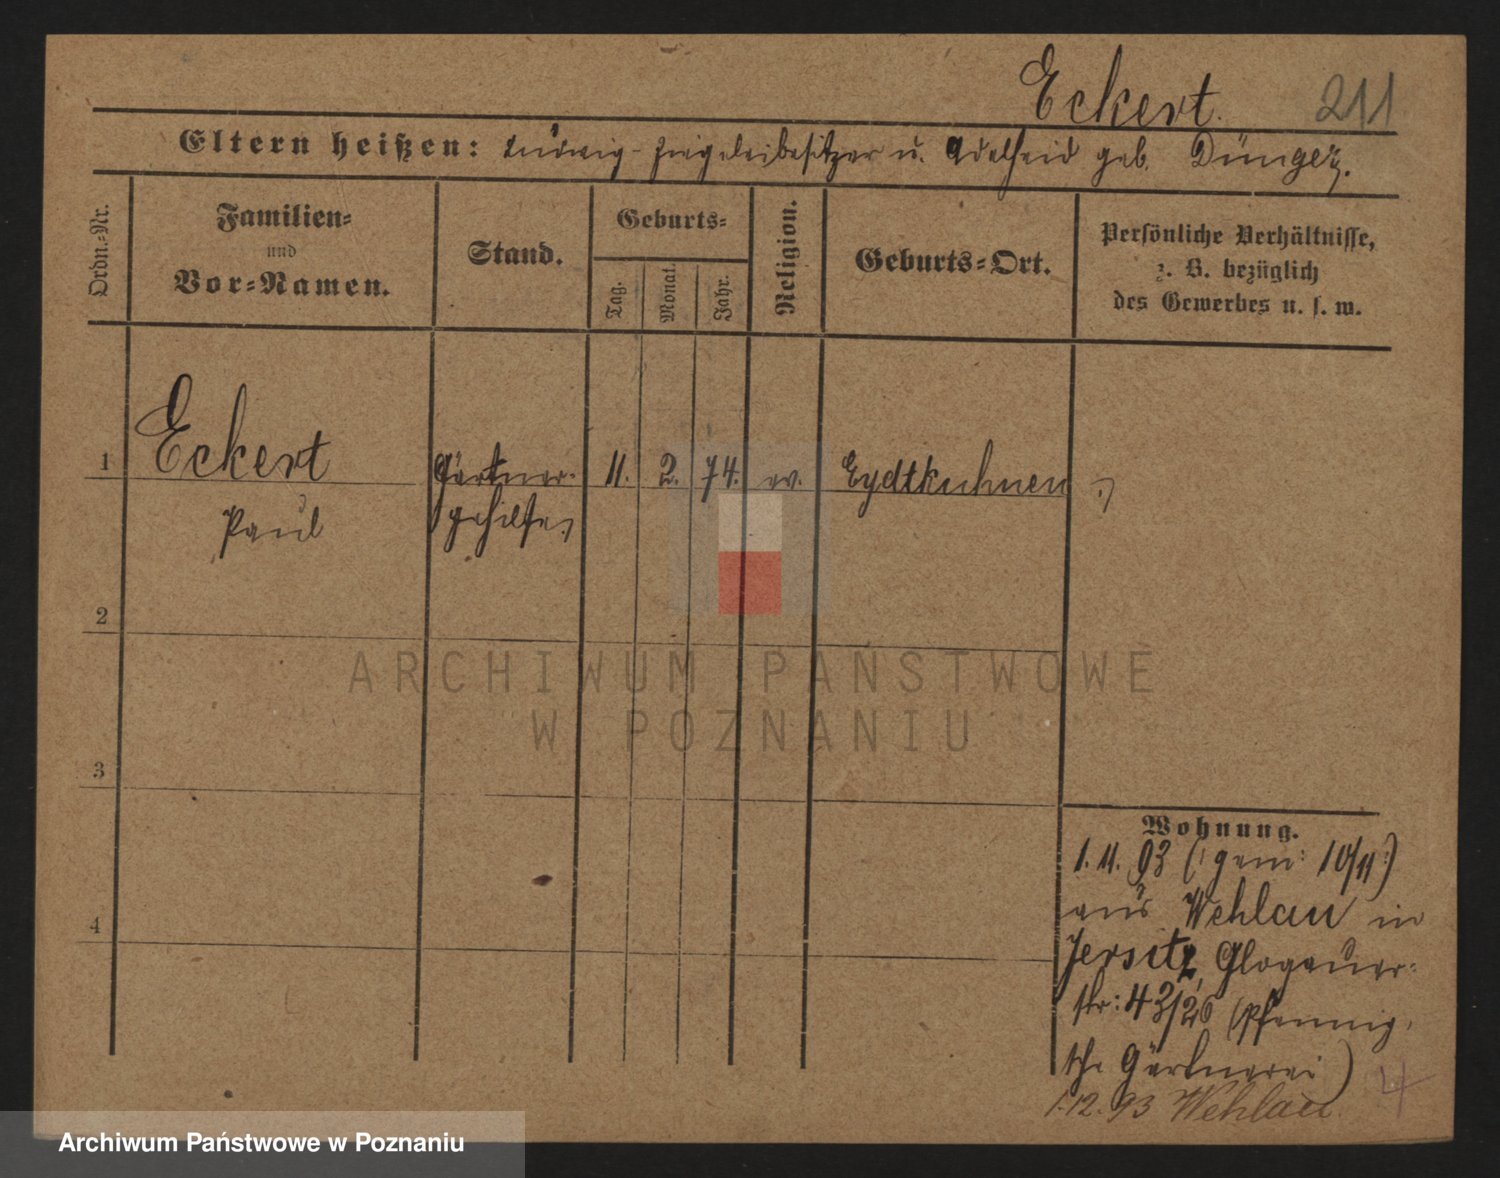 Eckert. 211
Eltern heißen: Ludwig - Ziegeleibesitzer u. Adelheid geb. Dünger.
Ordn.-Nr.
Familien-
und
Vor-Namen.
Stand.
Geburts-
Tag.
Monat.
Jahr.
Religion.
Geburts-Ort.
Persönliche Verhältnisse,
z. B. bezüglich
des Gewerbes u. s. w.
1 Eckert Gärtner- 11. 2. 74. ev. Eydtkuhnen
Paul gehilfe
2
3
4
Wohnung.
1. 11. 93 (: gem: 10/11 :)
aus Wehlau in
Jersitz, Glogauer-
str: 43/26 (Pfennig,
sche Gärtnerei)
1.12.93 Wehlau.
4
ARCHIWUM PAŃSTWOWE
W POZNANIU
Archiwum Państwowe w Poznaniu